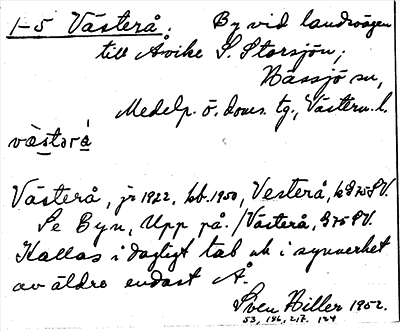 1-5 Västerå: By vid landsvägen
till Åvike S. Storsjön,
Hässjö sn,
Medelp. ö. doms. tg., Västern. l.
västərå
Västerå, jr 1922, kb. 1950, Vesterå, kB 75 SV.
Se Byn, Upp på. / Västerå, G 75 SV.
Kallas i dagligt tal uk i synnerhet
av äldre endast Å.
Sven Hiller 1952.
53, 146, 217, 184